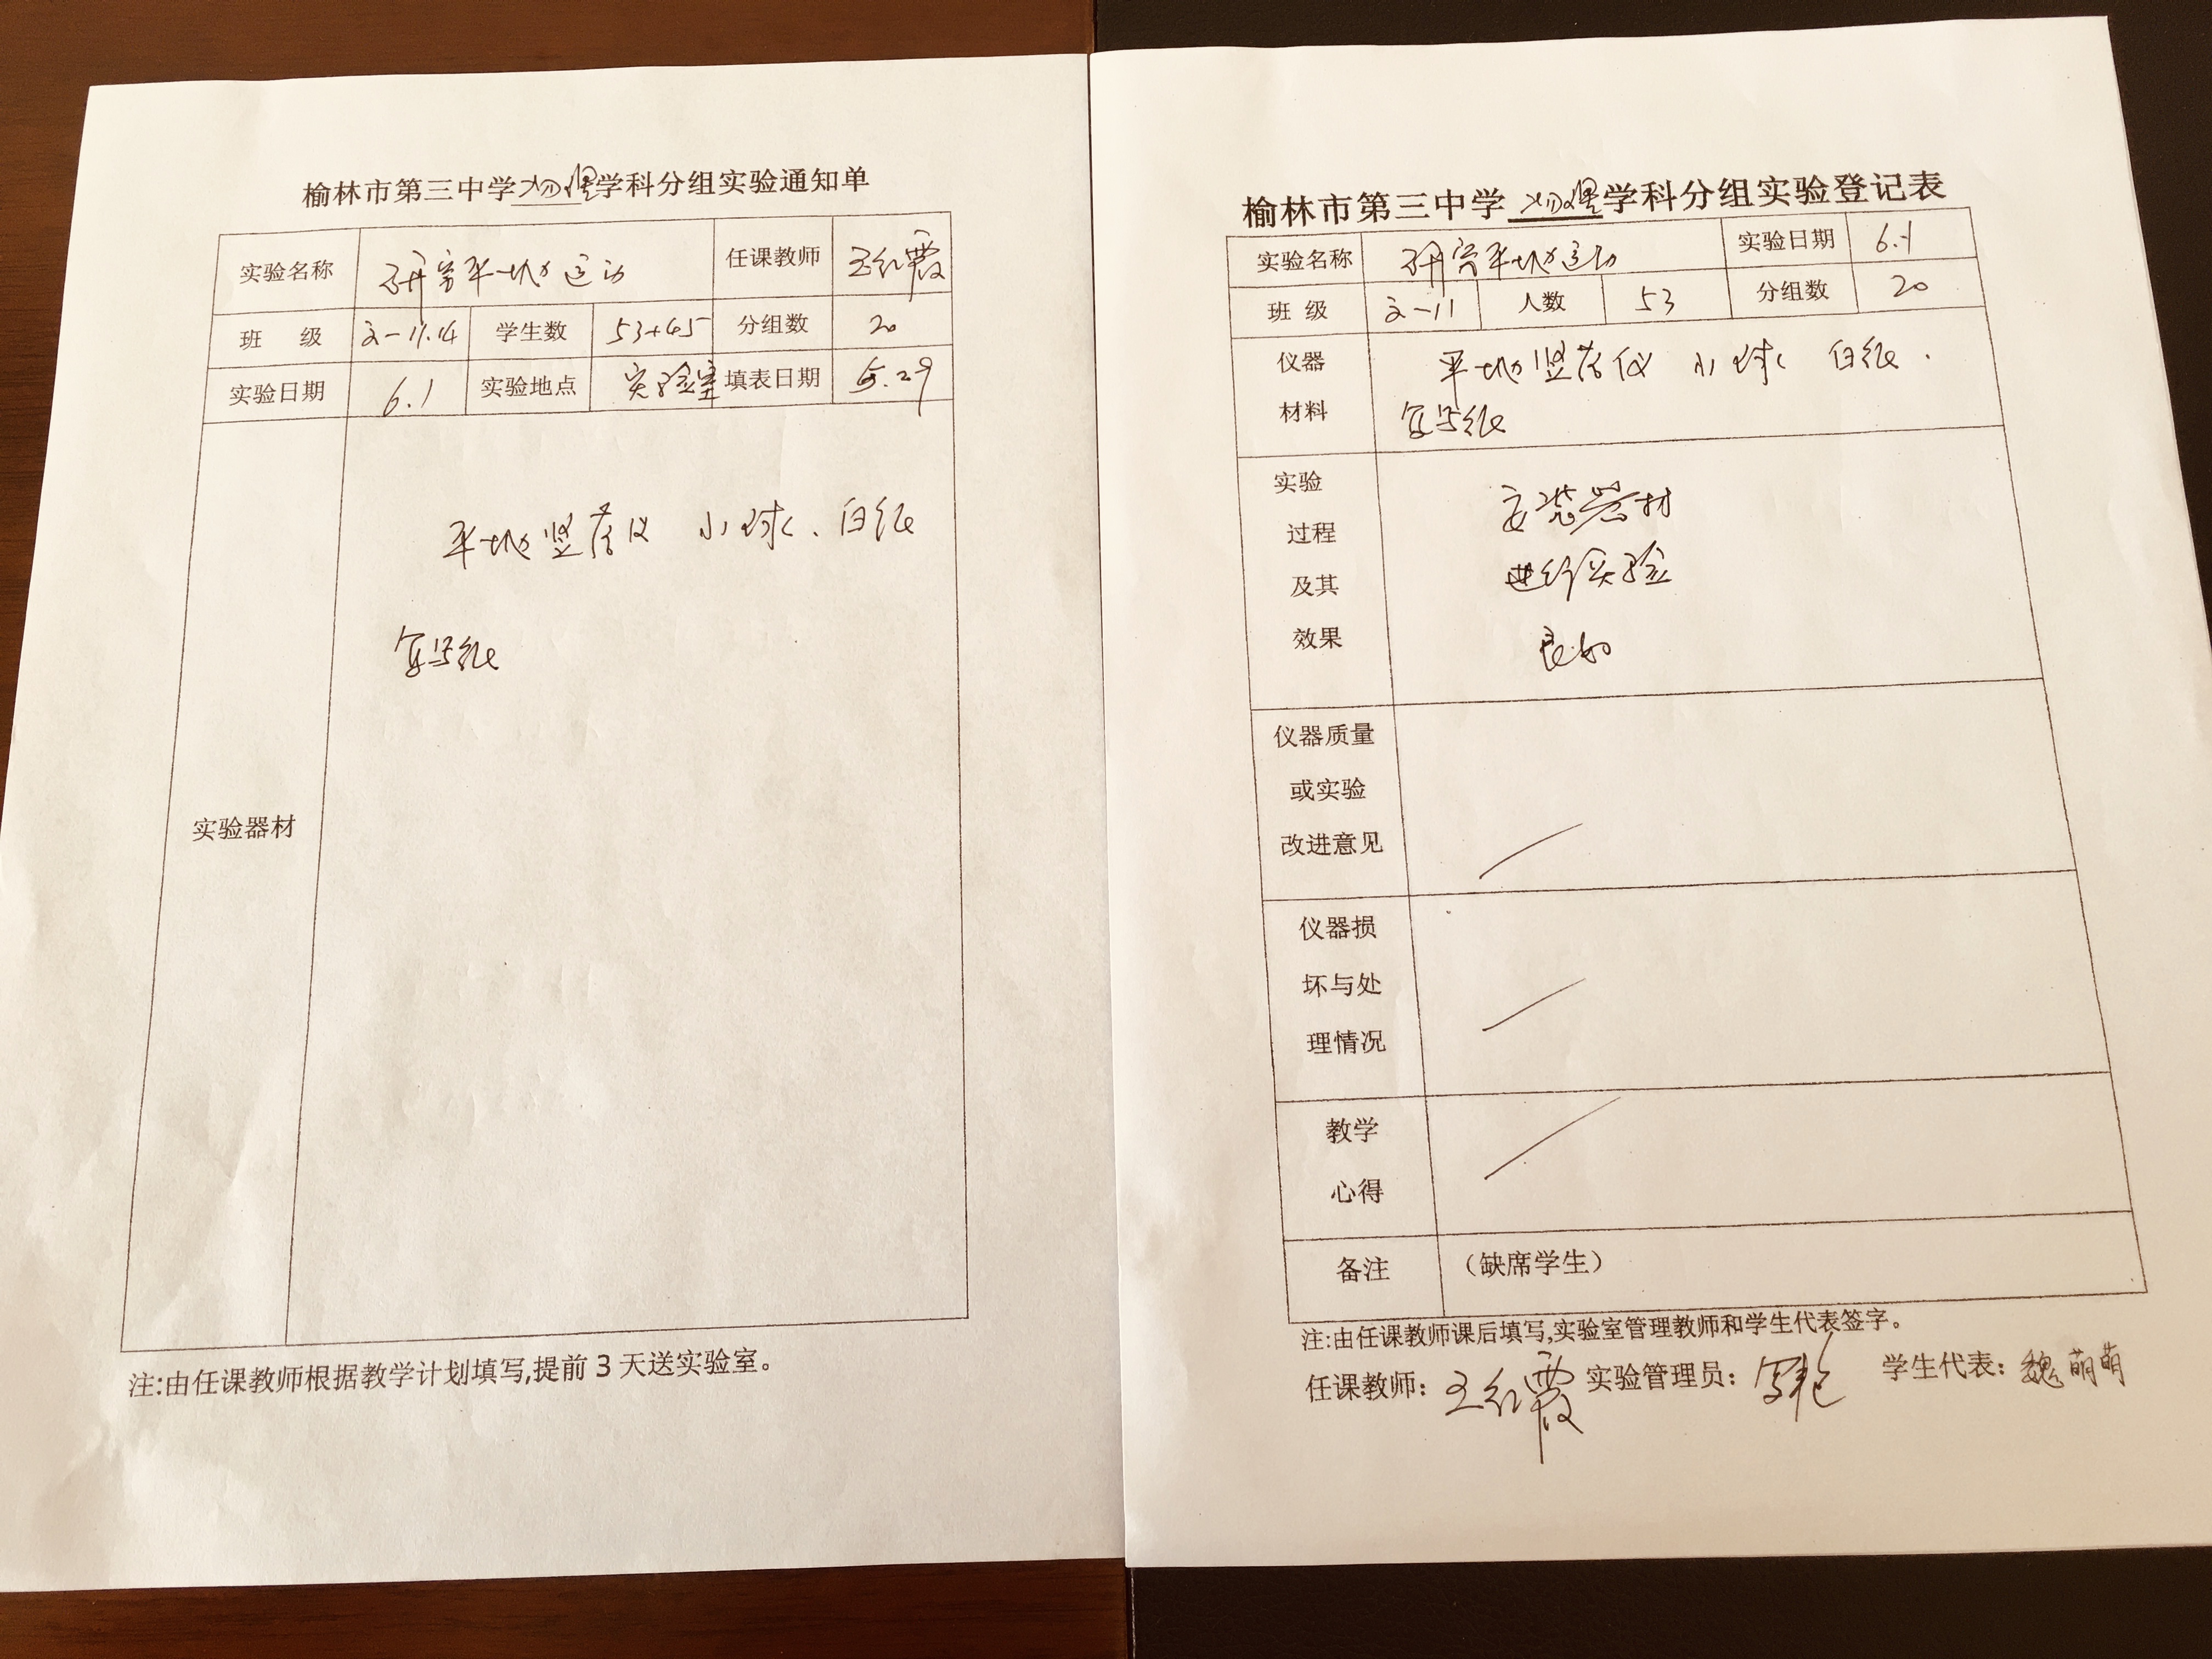 榆林市第三中学物理学科分组实验通知单
实验名称 研究平抛运动 任课教师 王红霞
班 级 高一11.14 学生数 53+65 分组数 20
实验日期 6.1 实验地点 实验室 填表日期 5.29
实验器材
平抛竖落仪 小球、白纸
复写纸
注:由任课教师根据教学计划填写,提前3天送实验室。
榆林市第三中学 物理学科分组实验登记表
实验名称 研究平抛运动 实验日期 6.1
班 级 高一11 人数 53 分组数 20
仪器
材料
平抛竖落仪 小球 白纸.
复写纸
实验
过程
及其
效果
安装器材
进行实验
良好
仪器质量
或实验
改进意见
仪器损
坏与处
理情况
教学
心得
备注 (缺席学生)
注:由任课教师课后填写,实验室管理教师和学生代表签字。
任课教师: 王红霞 实验管理员: 学生代表: 魏萌萌